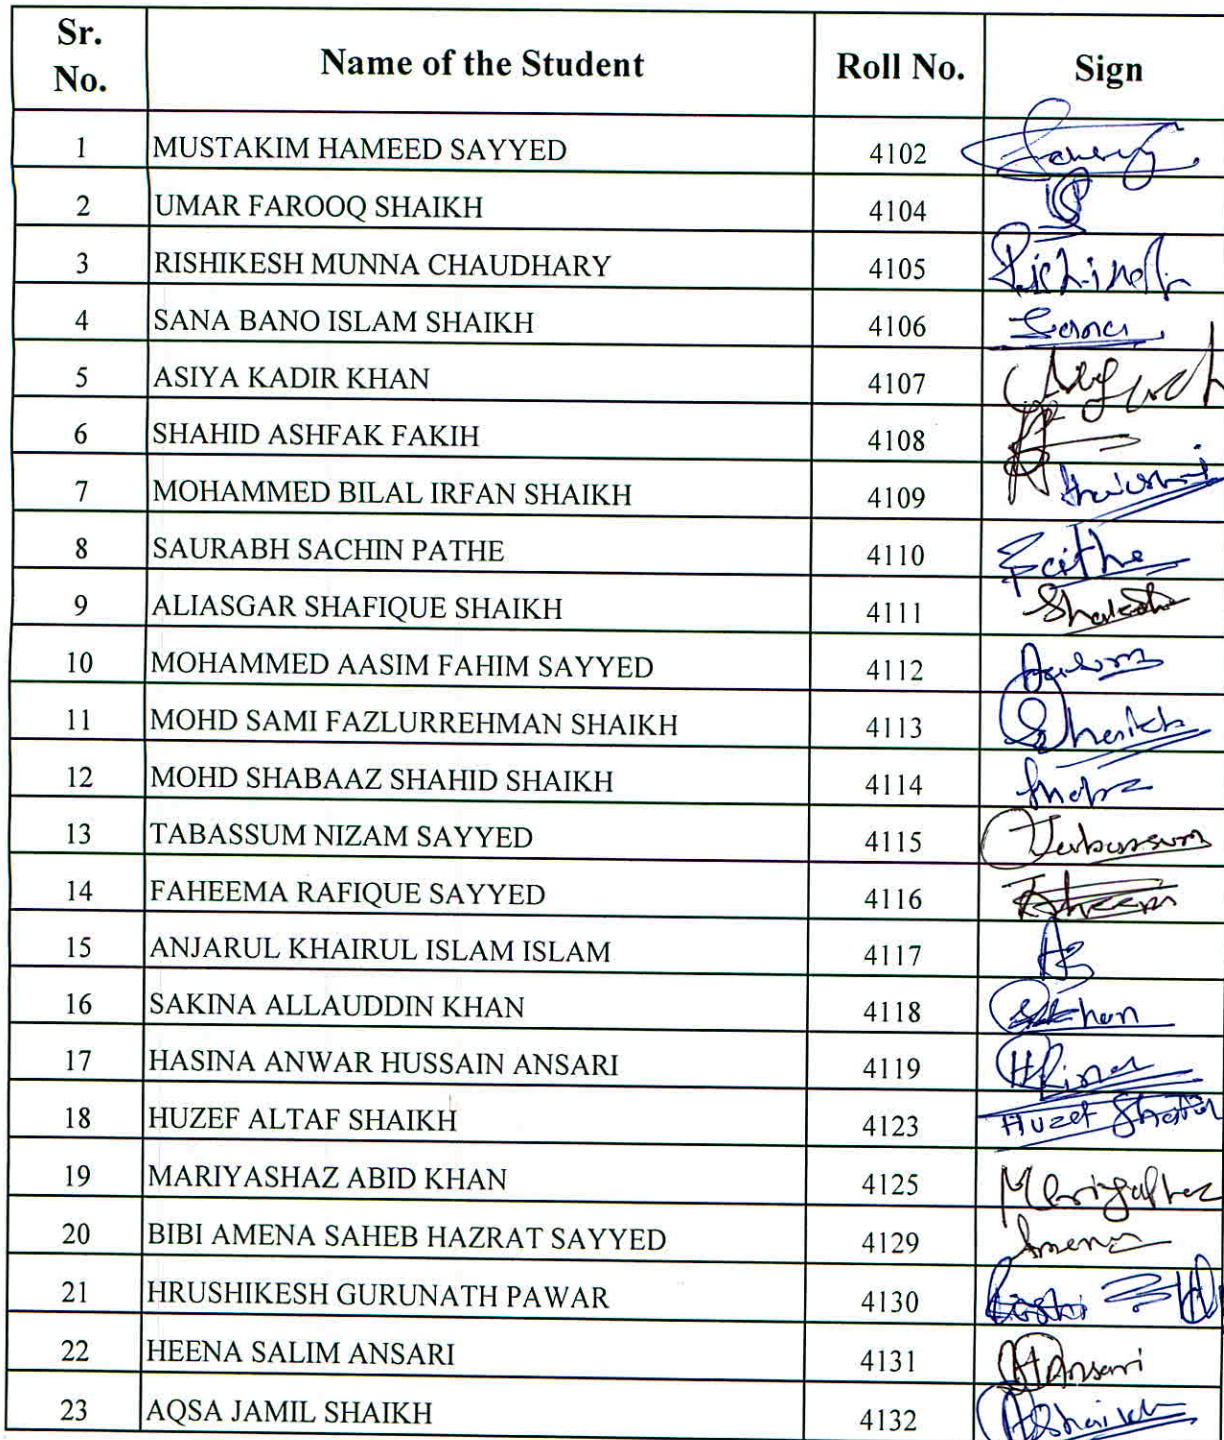 Sr. No. Name of the Student Roll No. Sign
1 MUSTAKIM HAMEED SAYYED 4102
2 UMAR FAROOQ SHAIKH 4104
3 RISHIKESH MUNNA CHAUDHARY 4105
4 SANA BANO ISLAM SHAIKH 4106 Sana
5 ASIYA KADIR KHAN 4107
6 SHAHID ASHFAK FAKIH 4108
7 MOHAMMED BILAL IRFAN SHAIKH 4109
8 SAURABH SACHIN PATHE 4110
9 ALIASGAR SHAFIQUE SHAIKH 4111
10 MOHAMMED AASIM FAHIM SAYYED 4112
11 MOHD SAMI FAZLURREHMAN SHAIKH 4113 Shaikh
12 MOHD SHABAAZ SHAHID SHAIKH 4114
13 TABASSUM NIZAM SAYYED 4115 Tabassum
14 FAHEEMA RAFIQUE SAYYED 4116
15 ANJARUL KHAIRUL ISLAM ISLAM 4117
16 SAKINA ALLAUDDIN KHAN 4118
17 HASINA ANWAR HUSSAIN ANSARI 4119
18 HUZEF ALTAF SHAIKH 4123 Huzef Shaikh
19 MARIYASHAZ ABID KHAN 4125
20 BIBI AMENA SAHEB HAZRAT SAYYED 4129 Amena
21 HRUSHIKESH GURUNATH PAWAR 4130
22 HEENA SALIM ANSARI 4131 HAnsari
23 AQSA JAMIL SHAIKH 4132 AShaikh